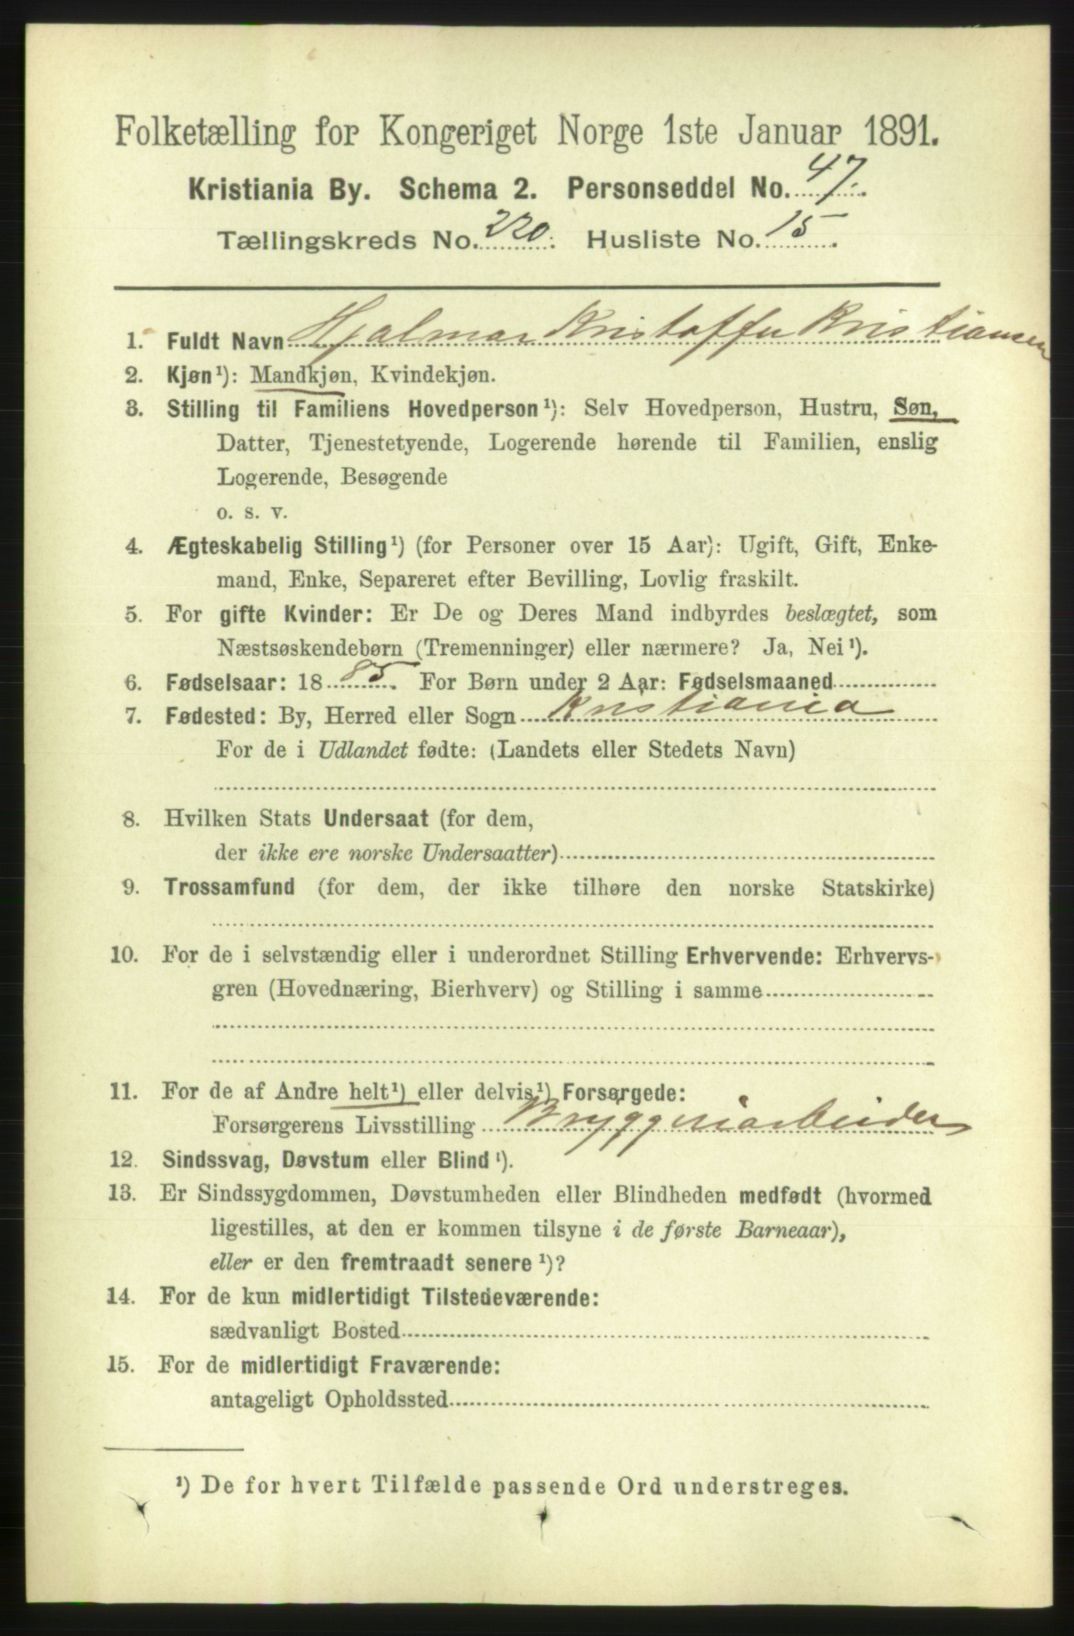 Folketælling for Kongeriget Norge 1ste Januar 1891.
Kristiania By. Schema 2. Personseddel No. 47.
Tællingskreds No. 220. Husliste No. 15.
1. Fuldt Navn Hjalmar Kristoffer Kristiansen
2. Kjøn¹): Mandkjøn, Kvindekjøn.
3. Stilling til Familiens Hovedperson¹): Selv Hovedperson, Hustru, Søn,
Datter, Tjenestetyende, Logerende hørende til Familien, enslig
Logerende, Besøgende
o. s. v.
4. Ægteskabelig Stilling¹) (for Personer over 15 Aar): Ugift, Gift, Enke-
mand, Enke, Separeret efter Bevilling, Lovlig fraskilt.
5. For gifte Kvinder: Er De og Deres Mand indbyrdes beslægtet, som
Næstsøskendebørn (Tremenninger) eller nærmere? Ja, Nei¹).
6. Fødselsaar: 1885. For Børn under 2 Aar: Fødselsmaaned
7. Fødested: By, Herred eller Sogn Kristiania
For de i Udlandet fødte: (Landets eller Stedets Navn)
8. Hvilken Stats Undersaat (for dem,
der ikke ere norske Undersaatter)
9. Trossamfund (for dem, der ikke tilhøre den norske Statskirke)
10. For de i selvstændig eller i underordnet Stilling Erhvervende: Erhvervs-
gren (Hovednæring, Bierhverv) og Stilling i samme
11. For de af Andre helt¹) eller delvis¹) Forsørgede:
Forsørgerens Livsstilling Bryggeriarbeider
12. Sindssvag, Døvstum eller Blind¹).
13. Er Sindssygdommen, Døvstumheden eller Blindheden medfødt (hvormed
ligestilles, at den er kommen tilsyne i de første Barneaar),
eller er den fremtraadt senere¹)?
14. For de kun midlertidigt Tilstedeværende:
sædvanligt Bosted
15. For de midlertidigt Fraværende:
antageligt Opholdssted
¹) De for hvert Tilfælde passende Ord understreges.